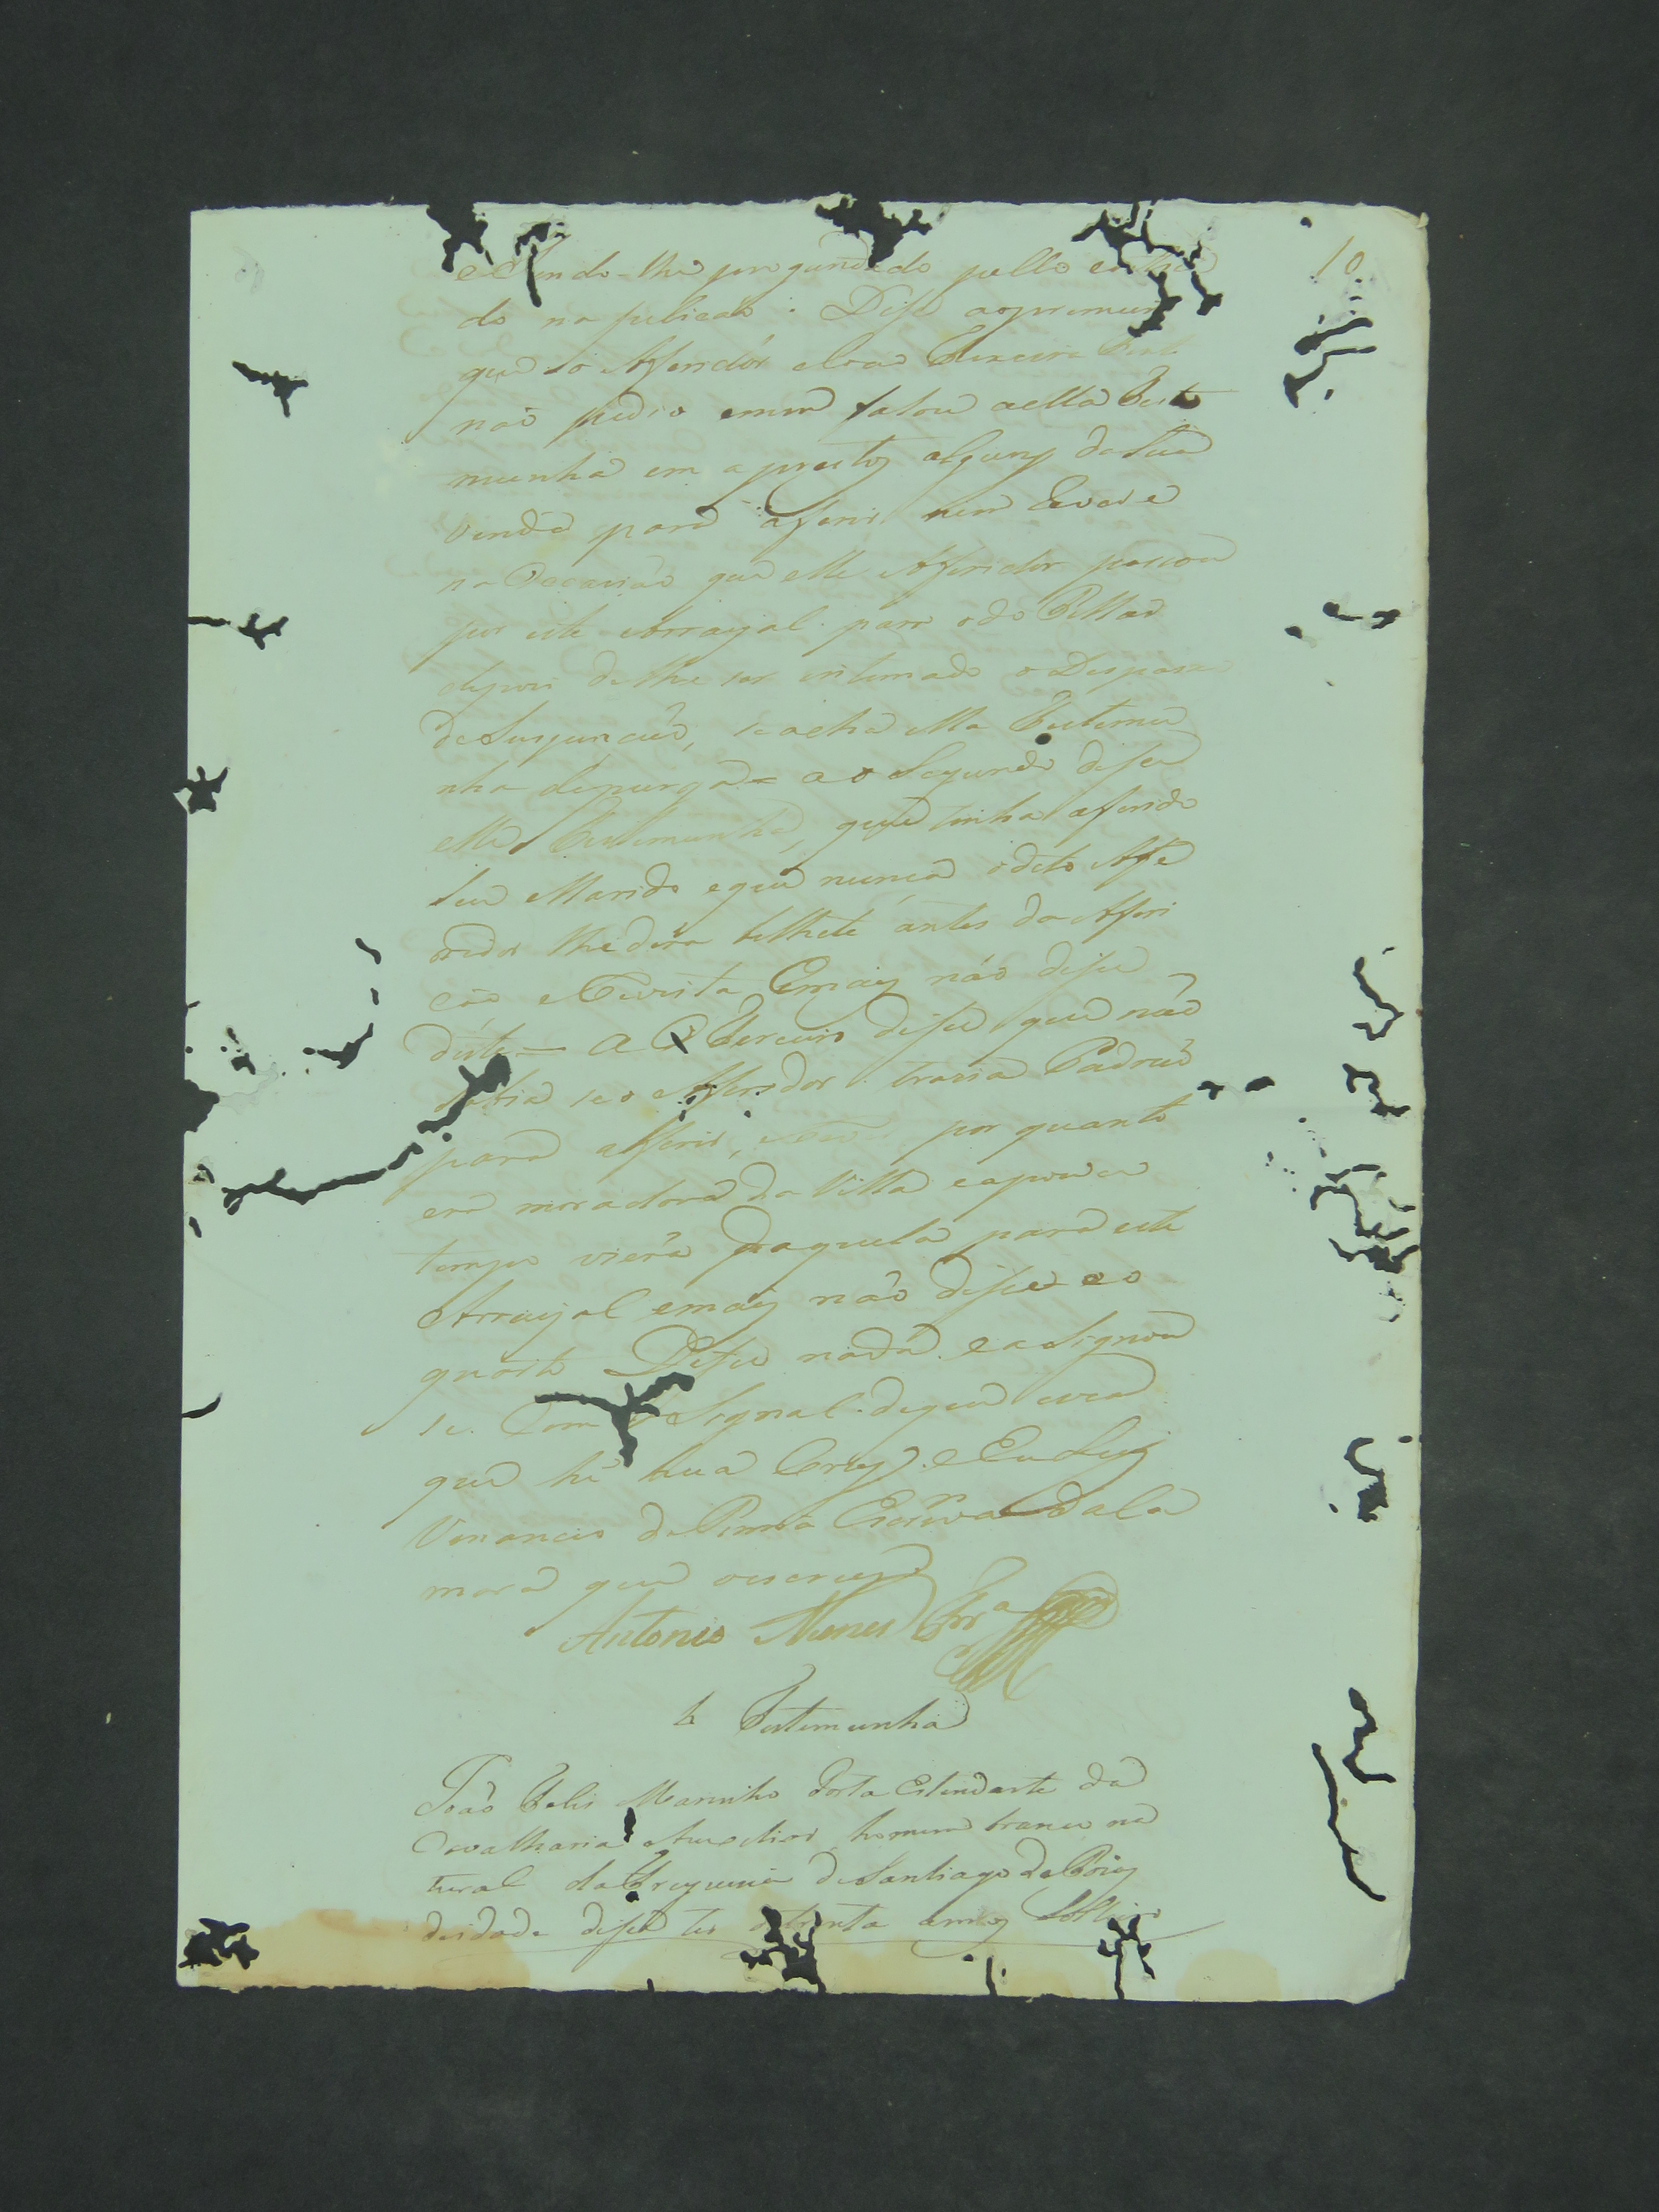 10
e Sendo-lhe preguntado pello
do na peticaõ. Dise ao primeiro
que o Afferidor
naõ pedio emem falou aella Teste
munha em aprestos alguns da Sua
Venda para aferir nem
na Occaziaõ que elle Aferidor passou
por este Arrayal para o do Pillar
depois de lhe ser intimado o Despaxo
de Suspencaõ, se acha ella Testemu
nha = ao Segundo dise
ella Testemunha, que tinha aferido
seu Marido e que nunca o dito Affe
ridor lhe dera bilhete antes da Aferi
caõ e Revista Emais náo dise
deste = A O Terceiro dise que náo
sabia seo Aferidor trazia Padraõ
para afferir, por quanto
era moradora da Villa eapouco
tempo viera daquela para este
Arrayal emais não dise eo
quarto Dise nada. e aSignou
se. Com o Signal de que uza
que hé hua Cruz. e Eu Luis
Venancio de Escrivaõ da Ca
mara que o escrevy
Antonio Nunes Frra
4 Testemunha
Joaõ Felis Marinho Porta Estendarte da
Cavalharia Auxeliar homem branco na
tural da Freguezia de Santiago de
deidade dise ter trinta annos Solteiro